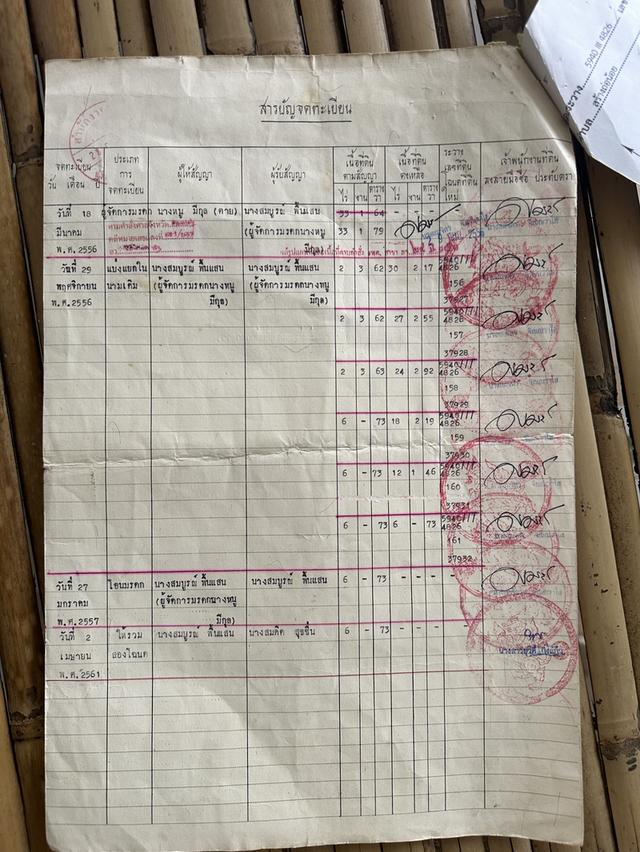 สารบัญจดทะเบียน
จดทะเบียน
วัน เดือน ปี
ประเภท
การ
จดทะเบียน
ผู้ให้สัญญา
ผู้รับสัญญา
เนื้อที่ดิน
ตามสัญญา
ไร่ งาน ตาราง
วา
เนื้อที่ดิน
คงเหลือ
ไร่ งาน ตาราง
วา
ระวาง
เลขที่ดิน
โฉนดที่ดิน
ใหม่
เจ้าพนักงานที่ดิน
ลงลายมือชื่อ ประทับตรา
วันที่ 18 ผู้จัดการมรดก นางหนู มีกุล (ตาย) นางสมบูรณ์ พื้นแสน 33 - 64 - - -
มีนาคม (ผู้จัดการมรดกนางหนู 33 1 79
พ.ศ. 2556 มีกุล)
วันที่ 29 แบ่งแยกใน นางสมบูรณ์ พื้นแสน นางสมบูรณ์ พื้นแสน 2 3 62 30 2 17 5940III
4826
พฤศจิกายน นามเดิม (ผู้จัดการมรดกนางหนู (ผู้จัดการมรดกนางหนู 156
พ.ศ. 2556 มีกุล) มีกุล) 37927
2 3 62 27 2 55 5940III
4826
157
37928
2 3 63 24 2 92 5940III
4826
158
37929
6 - 73 18 2 19 5940III
4826
159
37930
6 - 73 12 1 46 5940III
4826
160
37931
6 - 73 6 - 73 5940III
4826
161
37932
วันที่ 27 โอนมรดก นางสมบูรณ์ พื้นแสน นางสมบูรณ์ พื้นแสน 6 - 73 - - - -
มกราคม (ผู้จัดการมรดกนางหนู
พ.ศ. 2557 มีกุล)
วันที่ 2 ให้รวม นางสมบูรณ์ พื้นแสน นางสมคิด สุขชื่น 6 - 73 - - - -
เมษายน สองโฉนด
พ.ศ. 2561
ระวาง 5940 III 4826